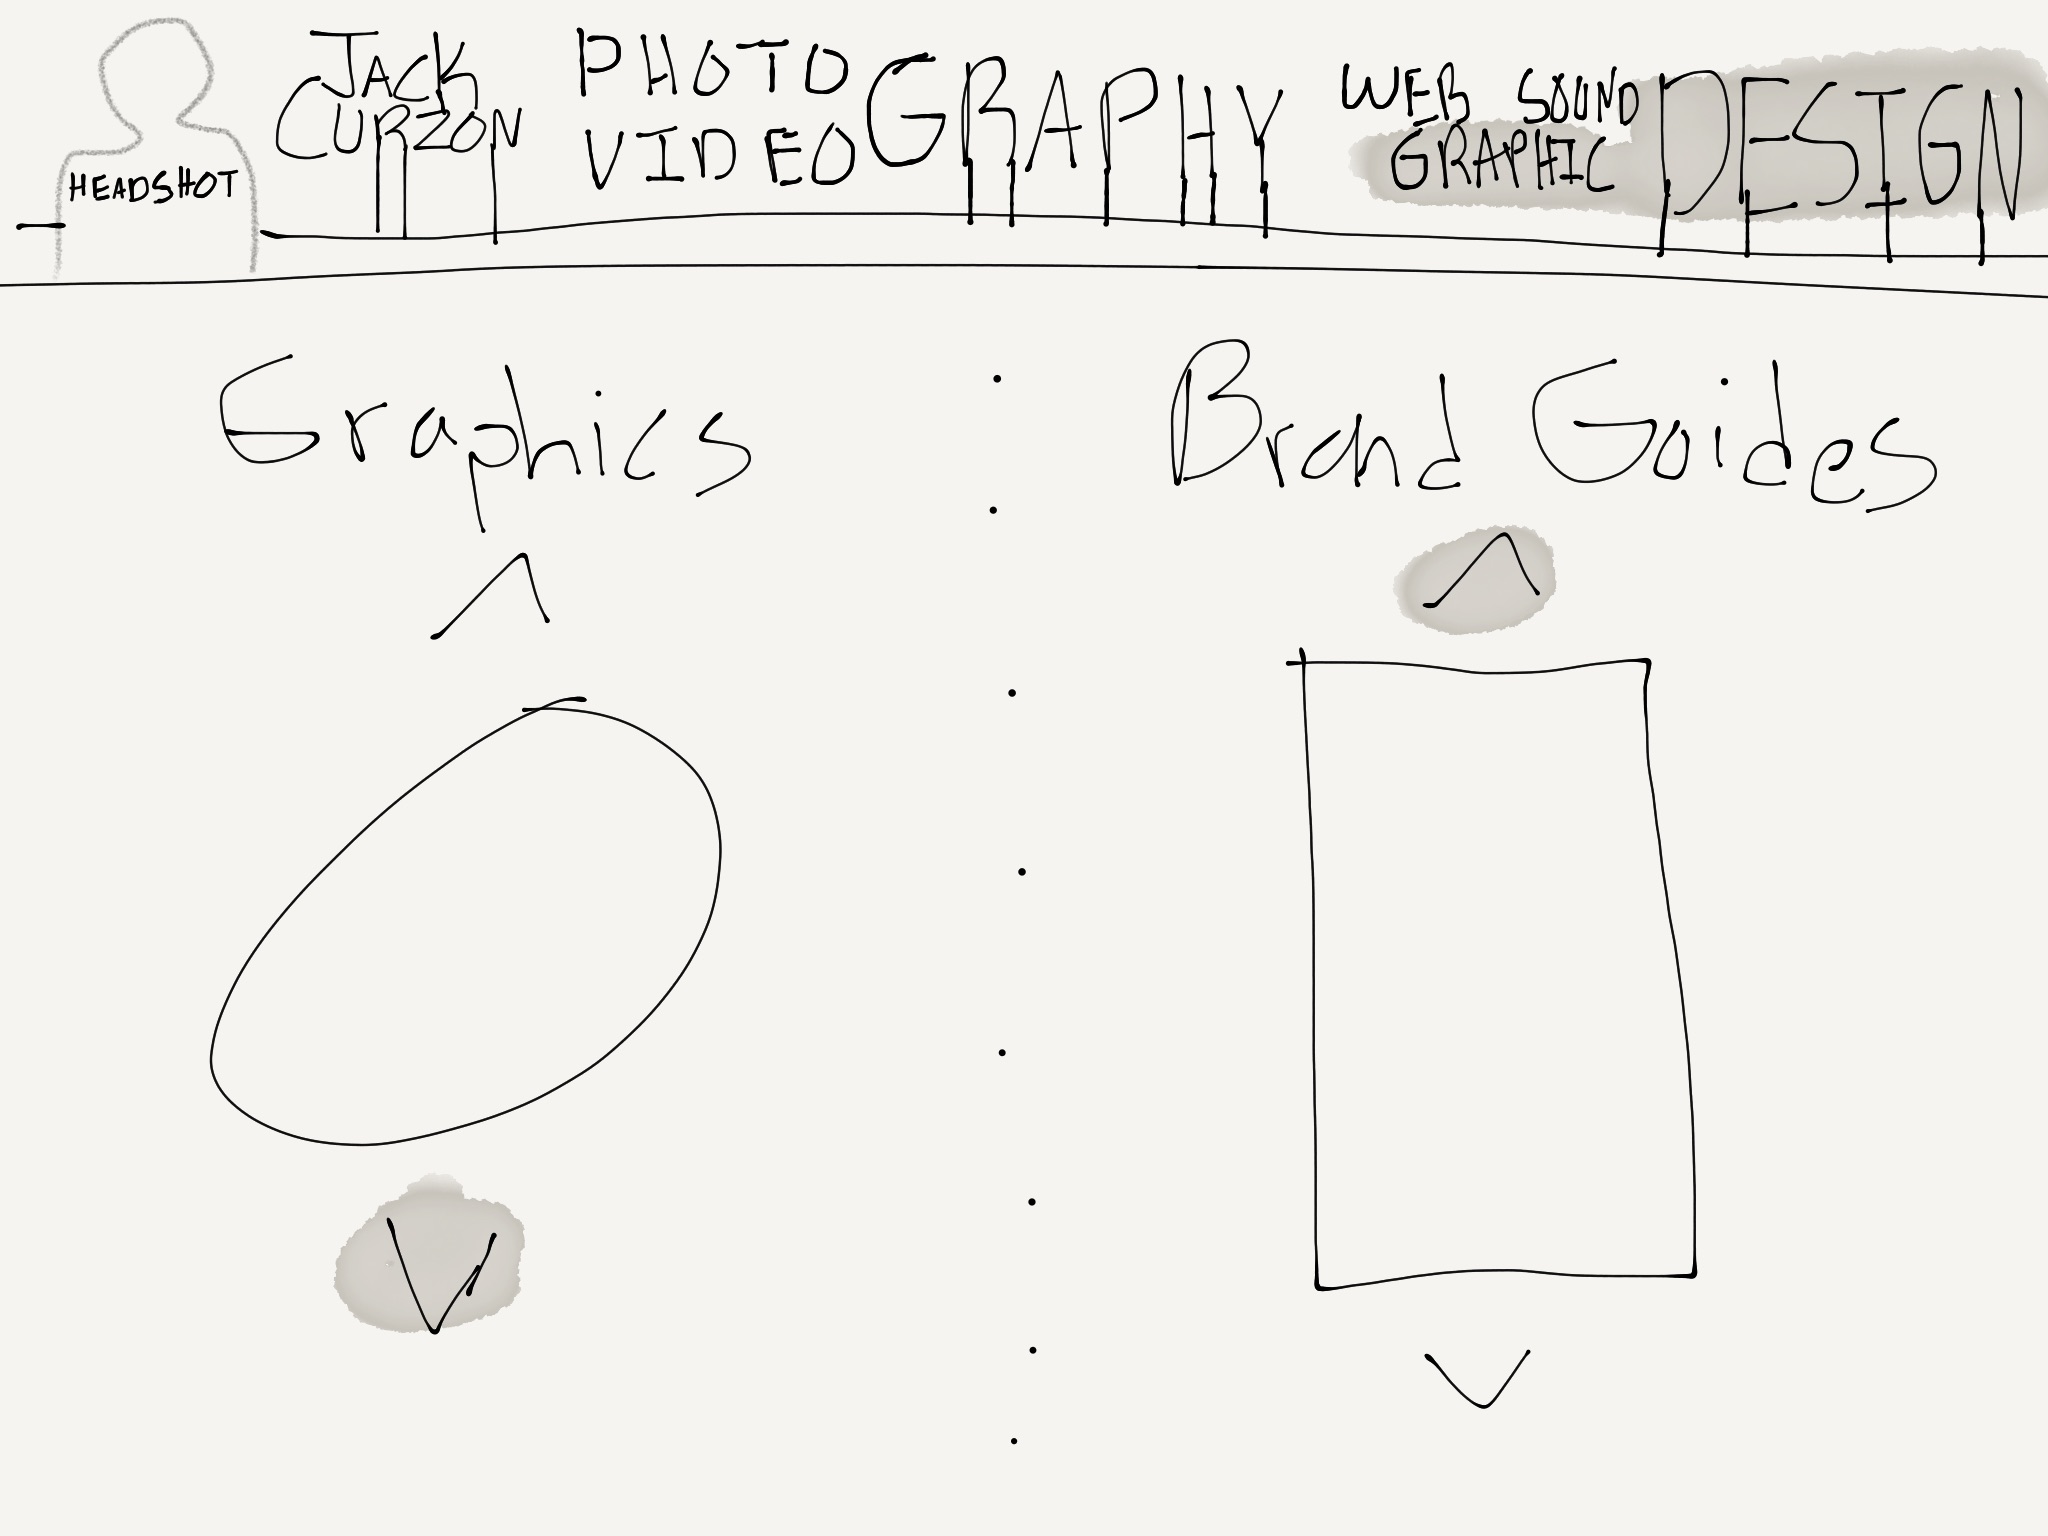 HEADSHOT
JACK
CURZON
PHOTO
VIDEO
GRAPHY
WEB SOUND
GRAPHIC
DESIGN
Graphics
Brand Guides